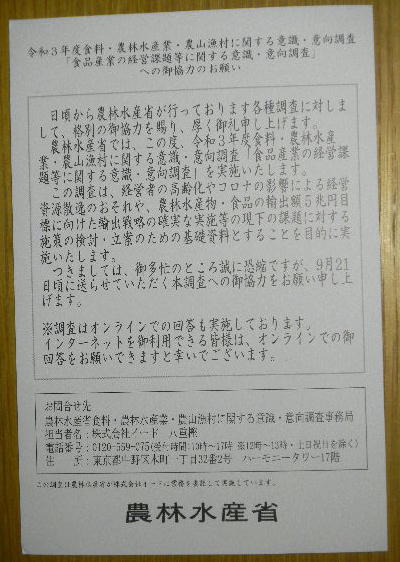 令和３年度食料・農林水産業・農山漁村に関する意識・意向調査
「食品産業の経営課題等に関する意識・意向調査」
への御協力のお願い
日頃から農林水産省が行っております各種調査に対しま
して、格別の御協力を賜り、厚く御礼申し上げます。
農林水産省では、この度、令和３年度食料・農林水産
業・農山漁村に関する意識・意向調査「食品産業の経営課
題等に関する意識・意向調査」を実施いたします。
この調査は、経営者の高齢化やコロナの影響による経営
資源散逸のおそれや、農林水産物・食品の輸出額５兆円目
標に向けた輸出戦略の確実な実施等の現下の課題に対する
施策の検討・立案のための基礎資料とすることを目的に実
施いたします。
つきましては、御多忙のところ誠に恐縮ですが、９月21
日頃に送らせていただく本調査への御協力をお願い申し上
げます。
※調査はオンラインでの回答も実施しております。
インターネットを御利用できる皆様は、オンラインでの御
回答をお願いできますと幸いでございます。
お問合せ先
農林水産省食料・農林水産業・農山漁村に関する意識・意向調査事務局
担当者名：株式会社イード　八重樫
電話番号：0120-559-075(受付時間:10時～17時 ※12時～13時・土日祝日を除く)
住　　所：東京都中野区本町一丁目32番2号　ハーモニータワー17階
この調査は農林水産省が株式会社イードに業務を委託して実施しています。
農林水産省